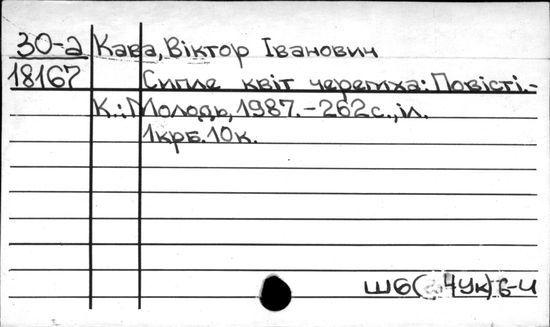 30-а Кава, Віктор Іванович
18167 Сипле квіт черемха: Повісті.-
К.: Молодь, 1987. - 262с., іл.
1крб. 10к.
Ш6( 4Ук)6-4